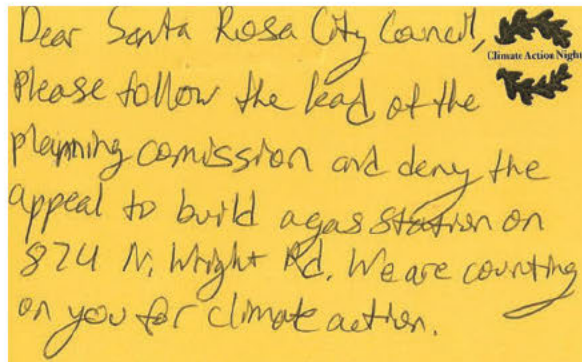 Dear Santa Rosa City Council,
Climate Action Night
Please follow the lead of the
planning comission and deny the
appeal to build a gas station on
874 N. Wright Rd. We are counting
on you for climate action.